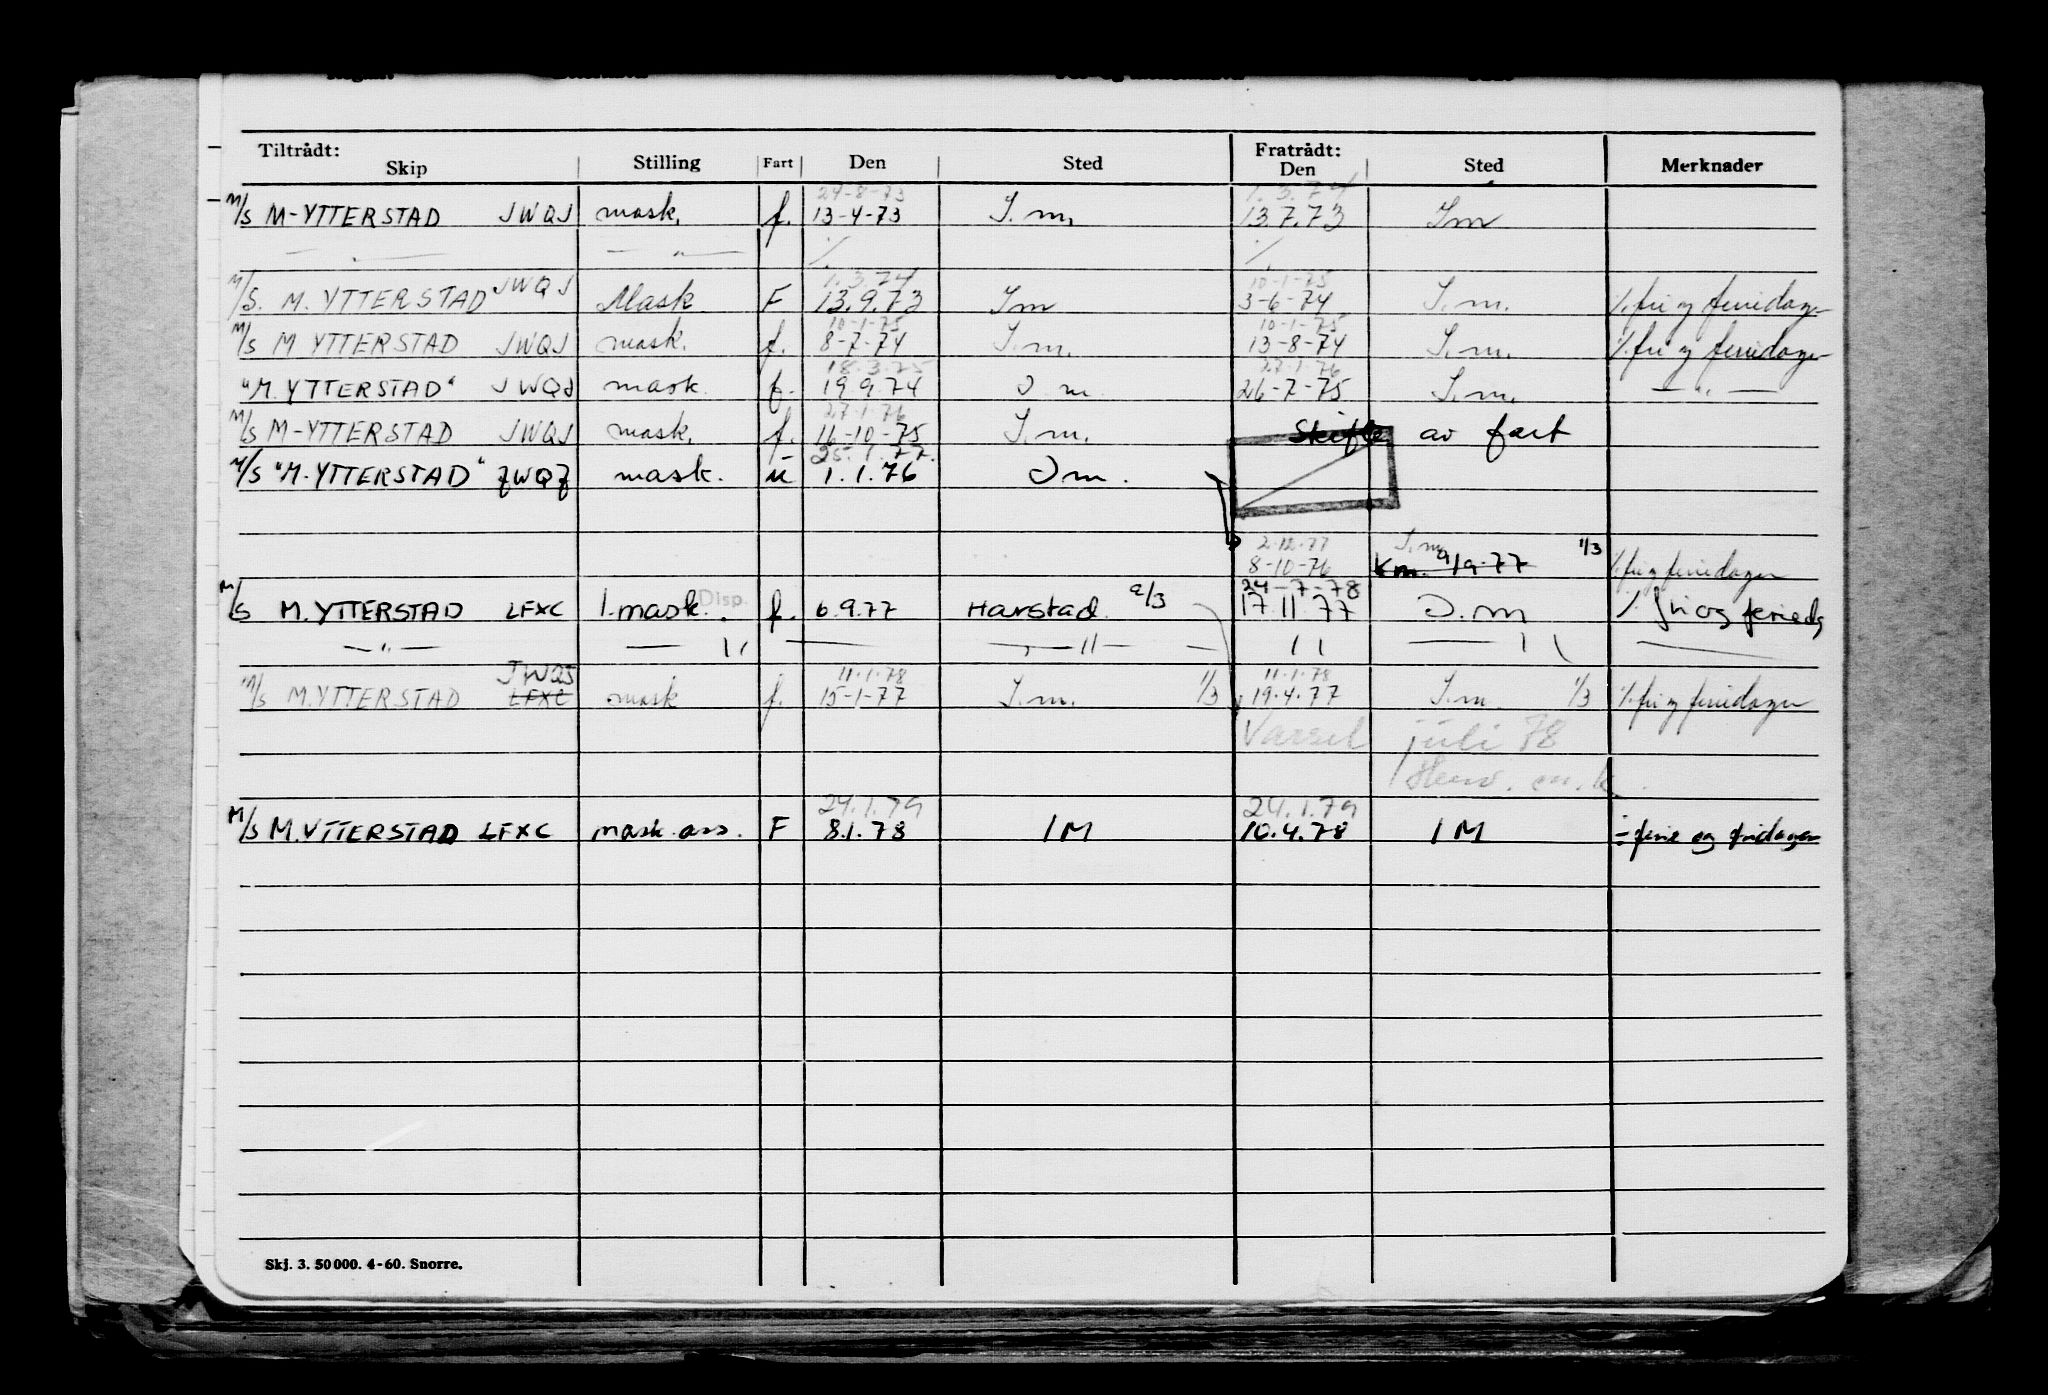 Tiltrådt: Fratrådt:
Skip Stilling Fart Den Sted Den Sted Merknader
29-8-73 1.3.74
M/S M-YTTERSTAD JWQJ mask. f. 13-4-73 I.m. 13.7.73 Im
— " — — " — ./. ./.
1.3.74 10-1-75
M/S. M. YTTERSTAD JWQJ Mask F 13.9.73 Im 3-6-74 I.m. ./. fri og feriedager
10-1-75 10-1-75
M/S M YTTERSTAD JWQJ mask. f. 8-7-74 I.m. 13-8-74 I.m. ./. fri og feriedager
18.3.75 27.1.76
"M.YTTERSTAD" JWQJ mask. f. 19.9.74 I m 26-7-75 I.m. — " —
27.1.76
M/S M-YTTERSTAD JWQJ mask. f. 16-10-75 I.m. Skifte av fart
25.1.77.
M/S "M.YTTERSTAD" JWQJ mask. u 1.1.76 I m.
2.12.77 I.m. 1/3
8-10-76 Km. 9/9-77 ./. fri og feriedager
24-7-78
M/S M.YTTERSTAD LFXC 1.mask. Disp. f. 6.9.77 Harstad 9/3 17.11.77 I.m ./. fri og feried
— " — — " — — " — " — " —
JWQJ 11.1.78 11.1.78
M/S M.YTTERSTAD LFXC mask f. 15-1-77 I.m. 1/3 19.4.77 I.m. 1/3 ./. fri og feriedager
Varsel juli 78
24.1.79 24.1.79
M/S M.YTTERSTAD LFXC mask.ass. F 8.1.78 IM 10.4.78 IM ÷ ferie og fridager
Skj. 3. 50 000. 4-60. Snorre.